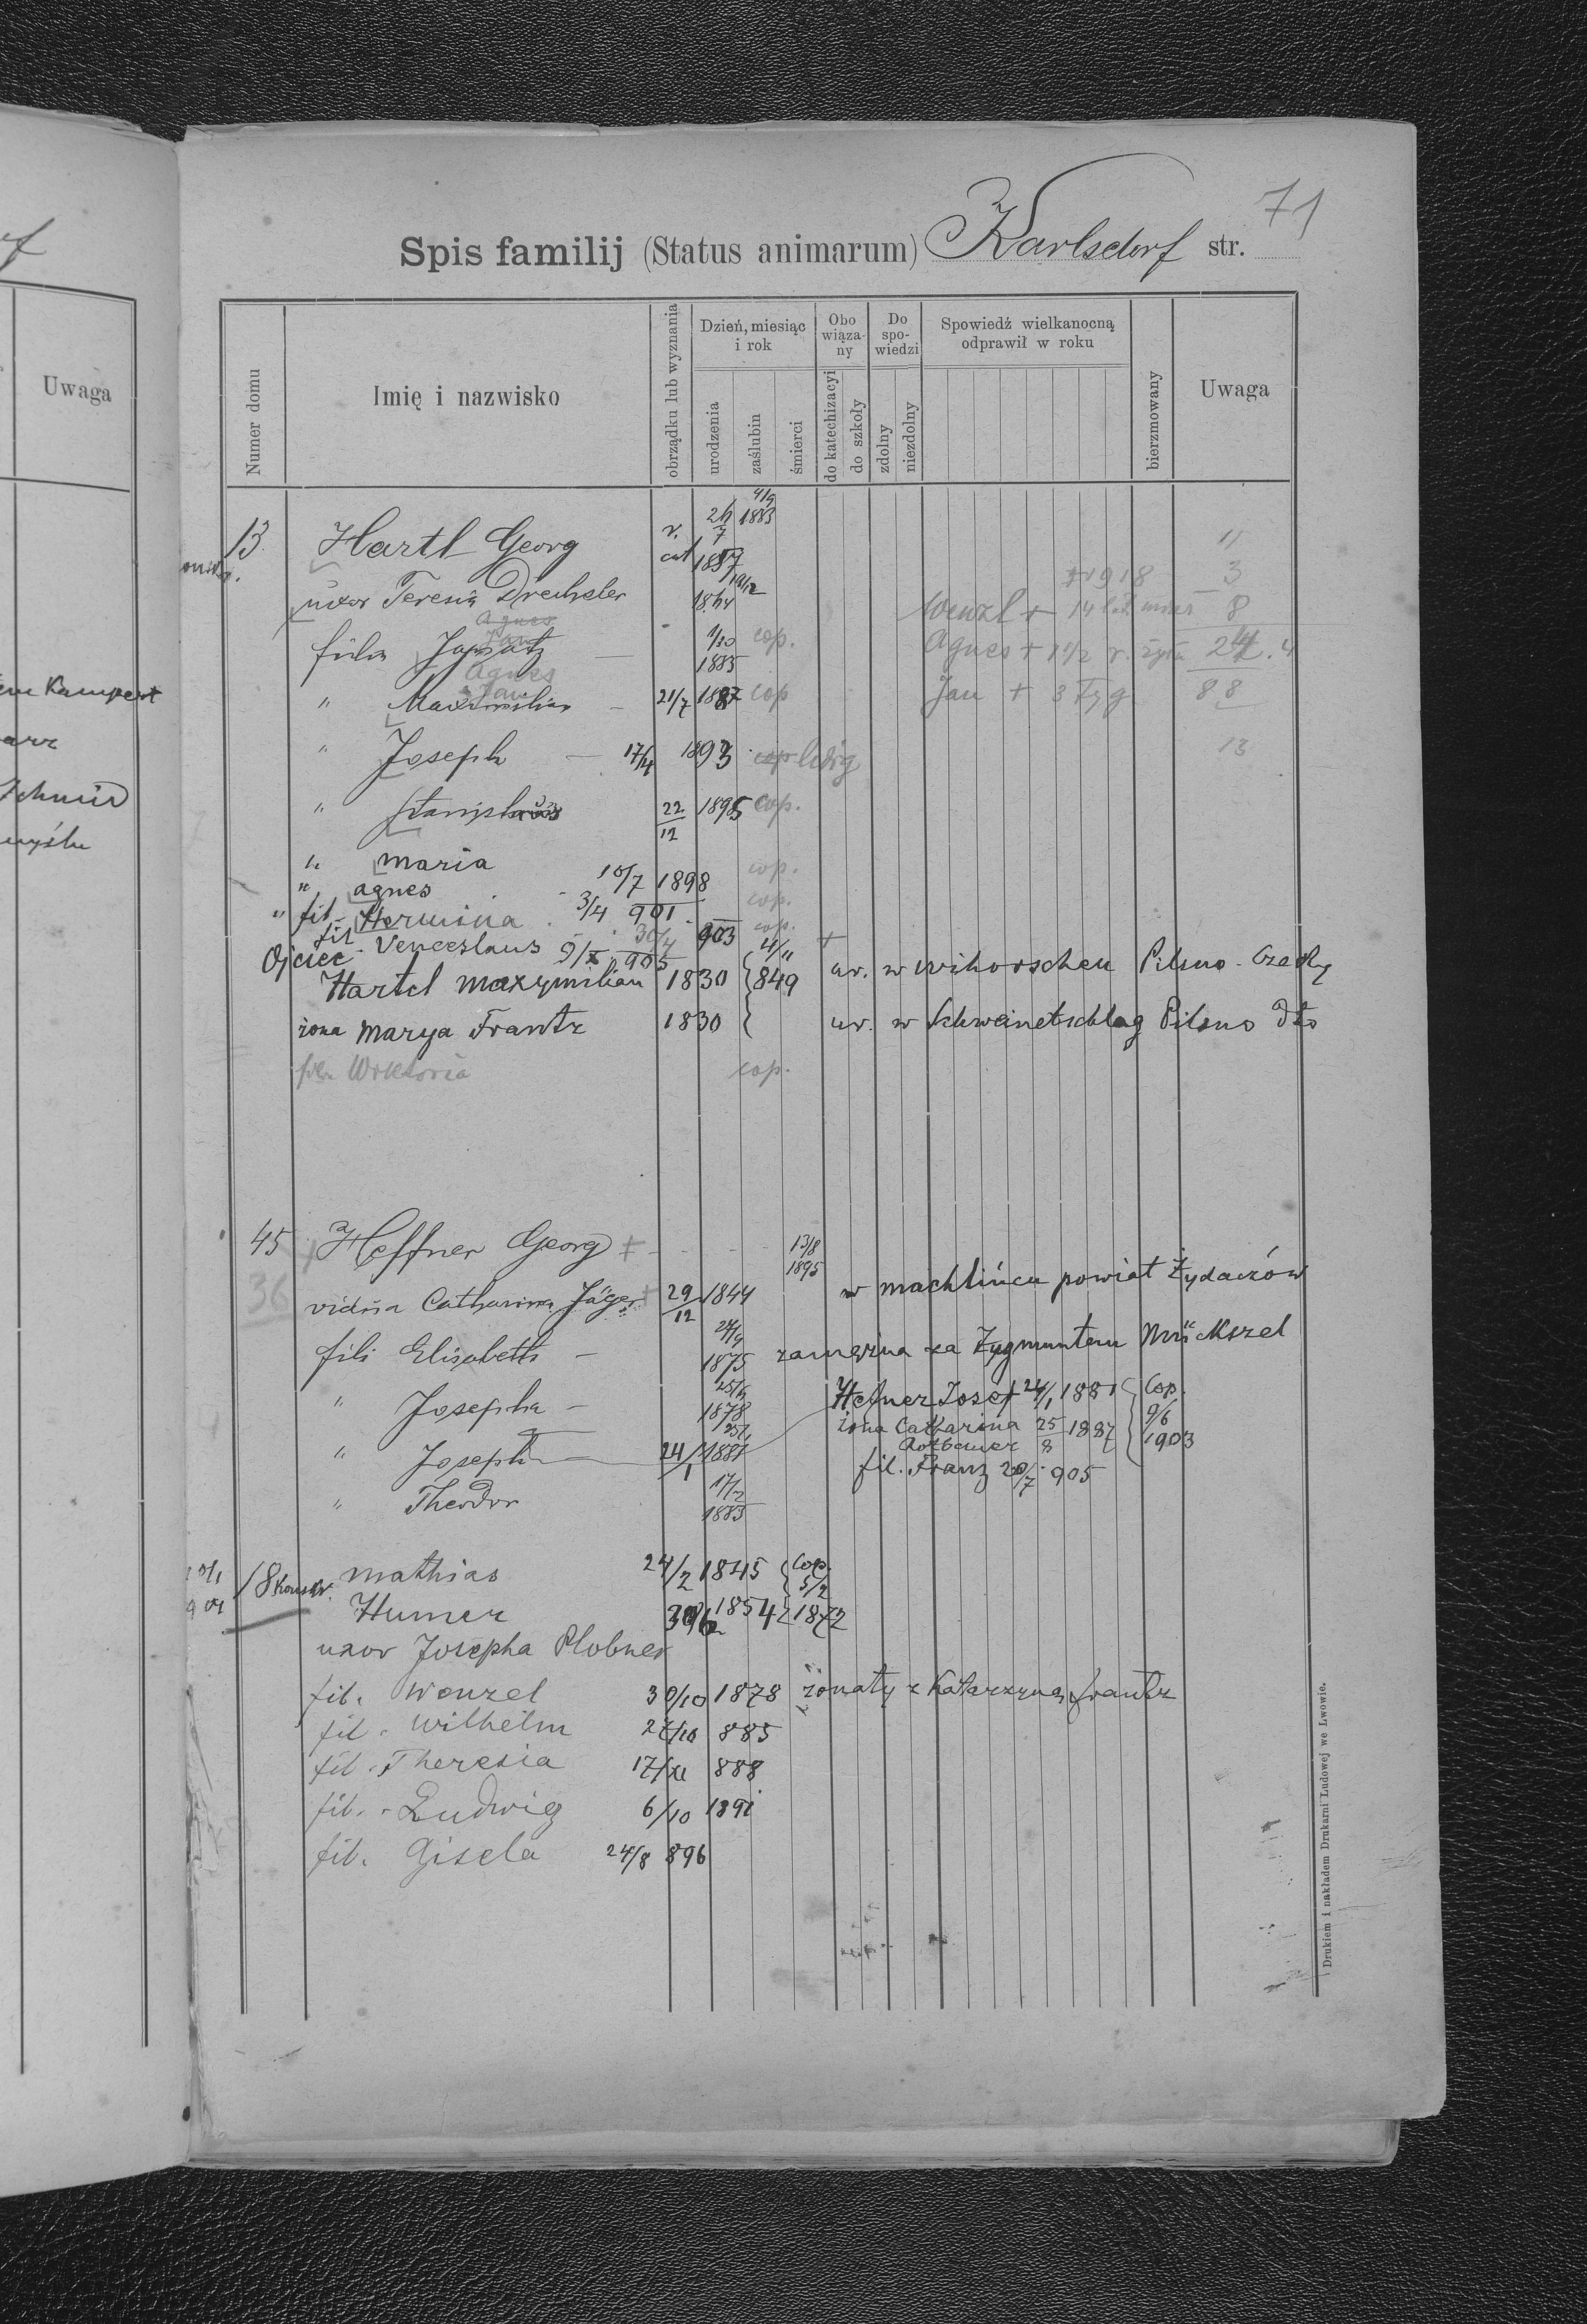 71
Spis familij (Status animarum) Karlsdorf str.
Numer domu
Imię i nazwisko
obrządku lub wyznania
Dzień, miesiąc i rok
urodzenia
zaślubin
śmierci
Obo wiąza- ny
do katechizacyi
do szkoły
Do spo- wiedzi
zdolny
niezdolny
Spowiedź wielkanocną odprawił w roku
bierzmowany
Uwaga
Uwaga
13 Hartl Georg r. cat 7 1883 11
uxor Teresia Drechsler 19/12 1918 3
Wenzl + 14 8
Agnes
Jan
Ignatz 1/10 1885 cop. Agnes + 1 1/2 r.
Agnes
Jan
" Maximilian 21/7 1887 cop Jan + 3 tyg 88
" Joseph 17/4 1893 cop ledig 13
" Stanislaus 22/12 1895 cop.
" Maria cop.
" agnes 10/7 1898 cop.
" fil. Hermina 3/4 901 cop.
fil. Venceslaus 9/X 905 30/4 903 4/11 +
Ojciec Hartel Maxymilian 1830 849 ur. w Wihorschen Pilsno Czechy
żona Marya Frantz 1830 ur. w Schweinetschlag Pilsno dto
Wiktoria cop.
45 Heffner Georg + 13/8 1895
36
vidua Catharina Jäger + 29/12 1844 w Machlińcu powiat Żydaczów
fili Elisabeth 1875 zamężna za Zygmuntem Mückszel
" Josepha 1878 Hefner Josef 24/1 1881 Cop. 9/6 1903
żona Catharina 25/8 1887
" Joseph 24/1 1881 fil. Franz 20/7 905
" Theodor 17/2 1883
18 Konskr. Mathias 24/2 1845 Cop. 5/2
Humer 1854 1872
uxor Josepha Plobner
fil. Wenzel 30/10 1878 żonaty z Katarzyną Frantz
fil. Wilhelm 27/10 885
fil. Theresia 17/XI 888
fil. Ludwig 6/10 1891
fil. Gisela 24/8 896
Drukiem i nakładem Drukarni Ludowej we Lwowie.